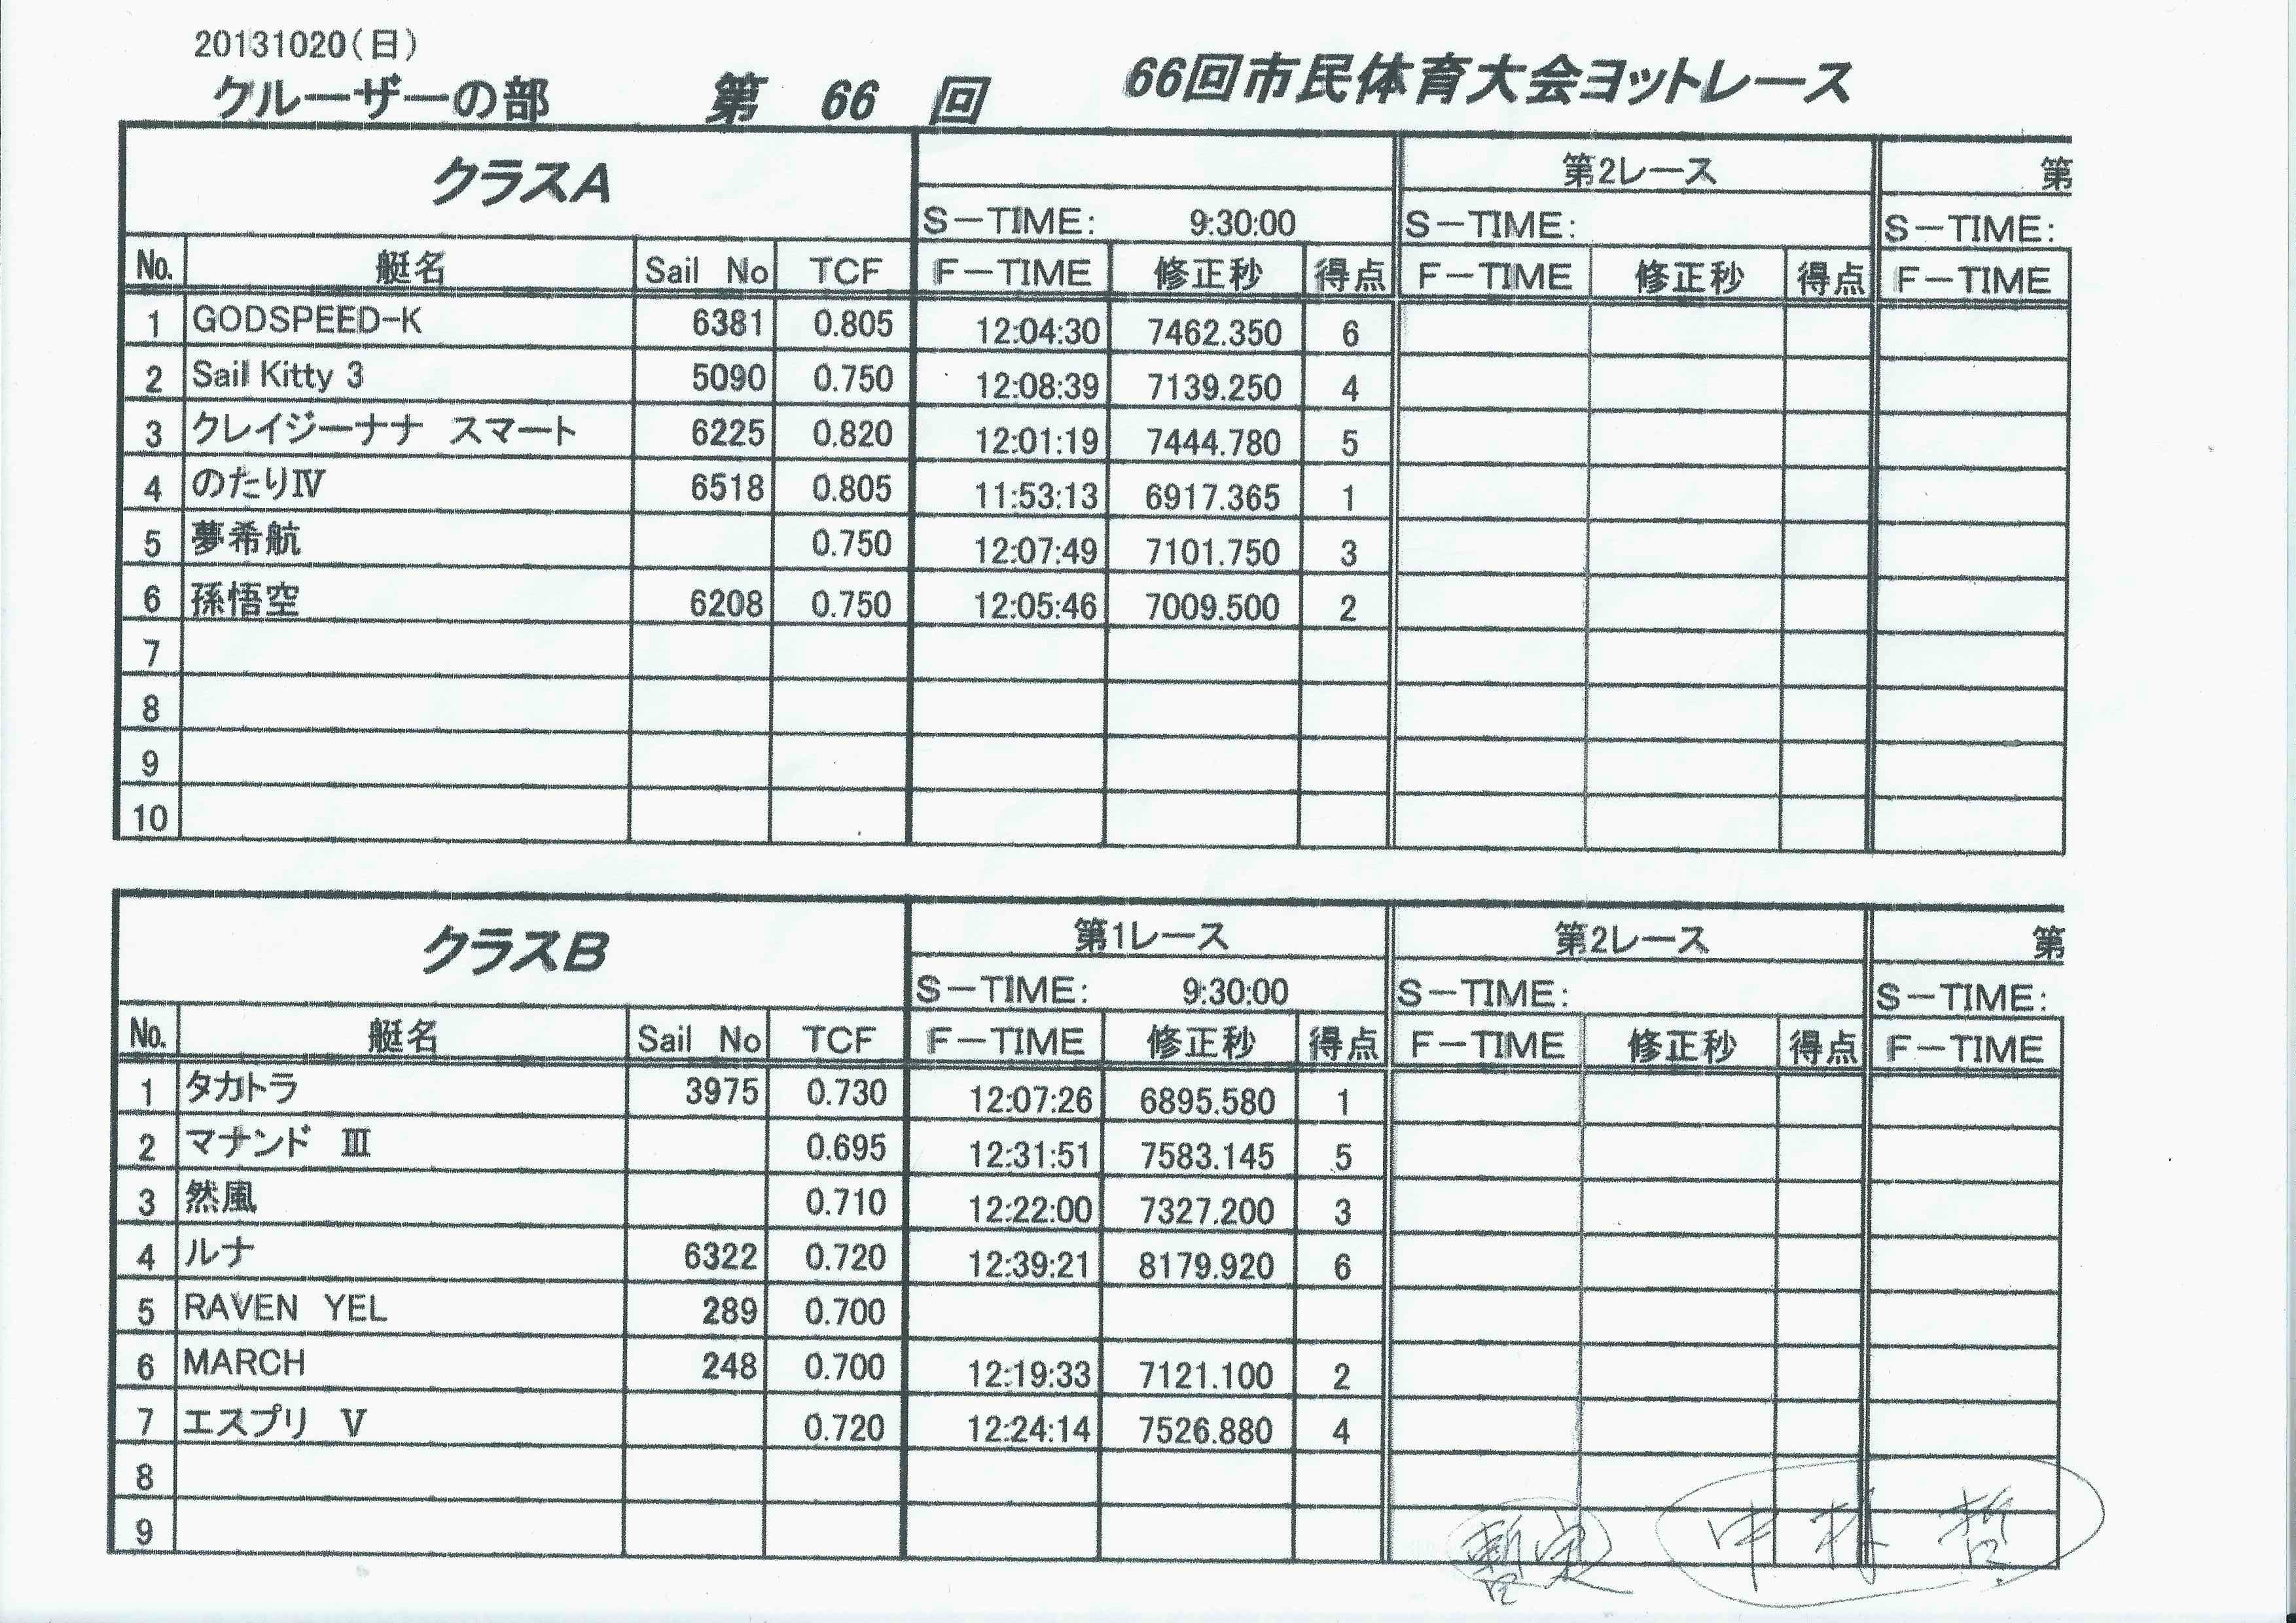 20131020（日）
クルーザーの部 第 66 回 66回市民体育大会ヨットレース
クラスA 第2レース 第
S－TIME: 9:30:00 S－TIME: S－TIME:
No. 艇名 Sail No TCF F－TIME 修正秒 得点 F－TIME 修正秒 得点 F－TIME
1 GODSPEED-K 6381 0.805 12:04:30 7462.350 6
2 Sail Kitty 3 5090 0.750 12:08:39 7139.250 4
3 クレイジーナナ スマート 6225 0.820 12:01:19 7444.780 5
4 のたりⅣ 6518 0.805 11:53:13 6917.365 1
5 夢希航 0.750 12:07:49 7101.750 3
6 孫悟空 6208 0.750 12:05:46 7009.500 2
7
8
9
10
クラスB 第1レース 第2レース 第
S－TIME: 9:30:00 S－TIME: S－TIME:
No. 艇名 Sail No TCF F－TIME 修正秒 得点 F－TIME 修正秒 得点 F－TIME
1 タカトラ 3975 0.730 12:07:26 6895.580 1
2 マナンド Ⅲ 0.695 12:31:51 7583.145 5
3 然風 0.710 12:22:00 7327.200 3
4 ルナ 6322 0.720 12:39:21 8179.920 6
5 RAVEN YEL 289 0.700
6 MARCH 248 0.700 12:19:33 7121.100 2
7 エスプリ Ⅴ 0.720 12:24:14 7526.880 4
8
9
暫定 中林 哲